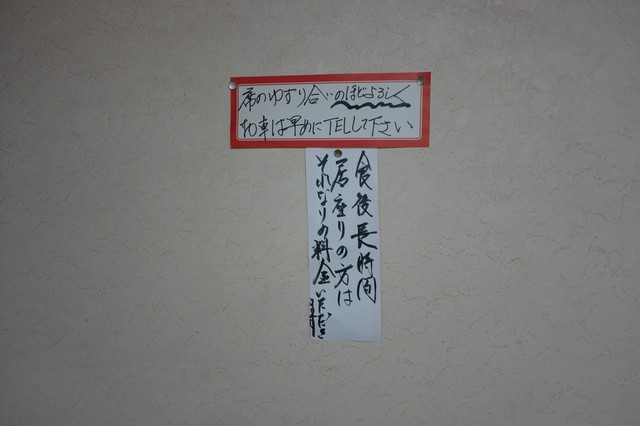 席のゆずり合いのほどよろしく
切車は早めにTELして下さい
食後長時間
居座りの方は
それなりの料金いただき
ます